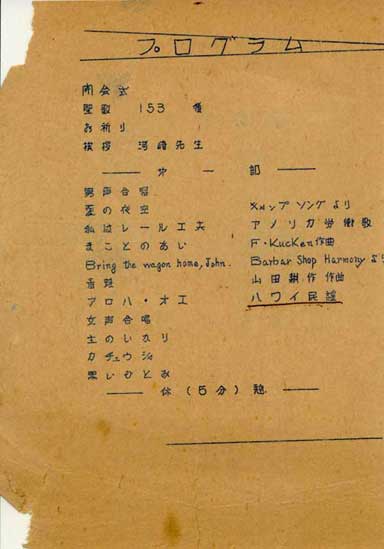 プログラム
開会式
聖歌 153 僕
お祈り
挨拶 河崎先生
第一部
男声合唱
星の夜空 キャンプソングより
私はレール工夫 アメリカ労働歌
まことのあい F・Kucken作曲
Bring the wagon home, John. Barbar Shop Harmony より
音頭 山田耕作 作曲
アロハ・オエ ハワイ民謡
女声合唱
主のいのり
カチュウシャ
黒いひとみ
休(5分)憩